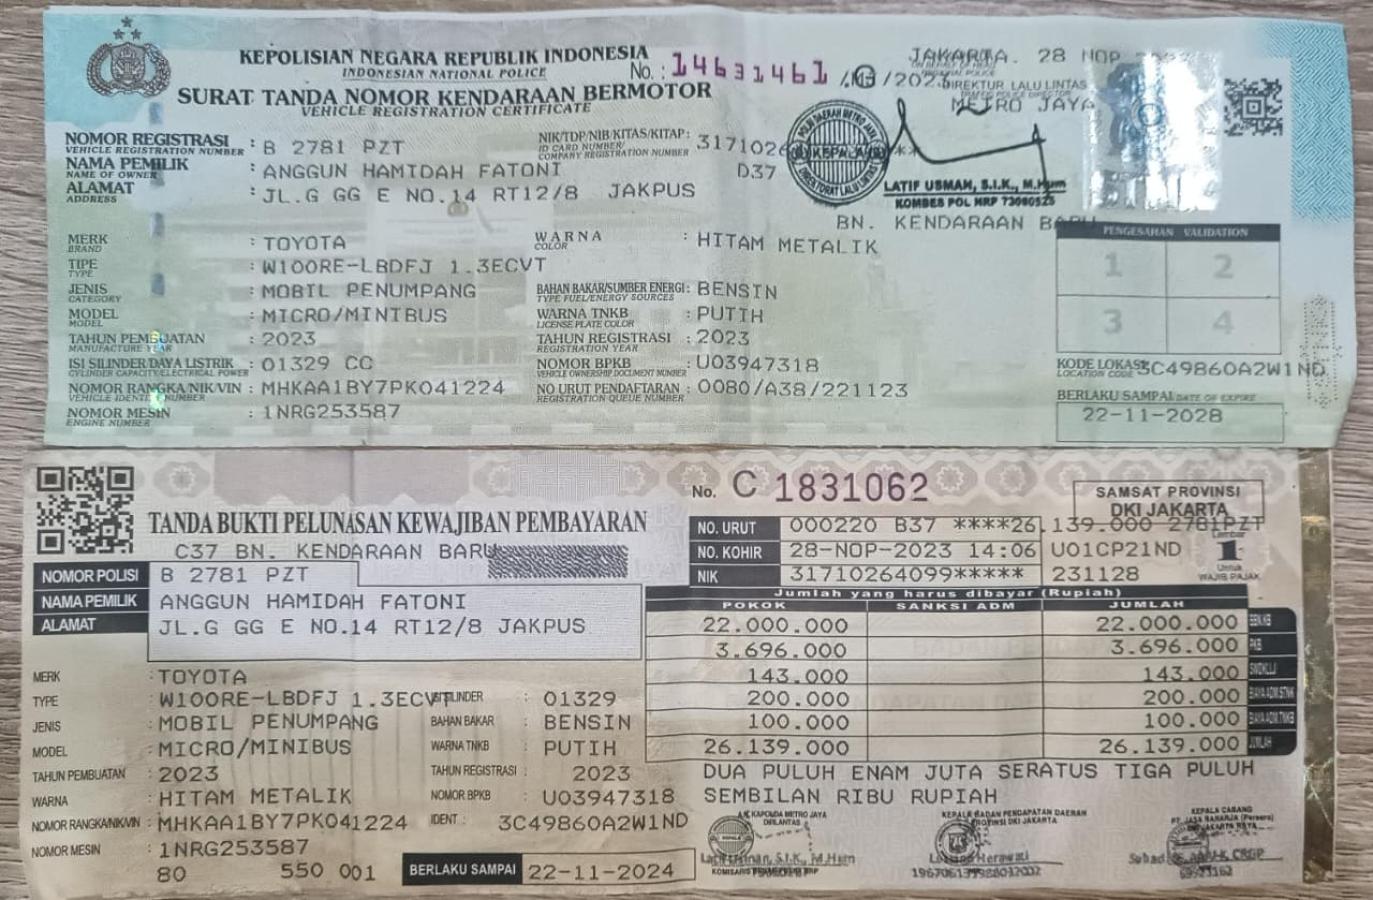 KEPOLISIAN NEGARA REPUBLIK INDONESIA
INDONESIAN NATIONAL POLICE
No. : 14631461
SURAT TANDA NOMOR KENDARAAN BERMOTOR
VEHICLE REGISTRATION CERTIFICATE
JAKARTA. 28 NOP
DIREKTUR LALU LINTAS
METRO JAYA
NOMOR REGISTRASI : B 2781 PZT
VEHICLE REGISTRATION NUMBER
NIK/TDP/NIB/KITAS/KITAP: 3171026
ID CARD NUMBER/
COMPANY REGISTRATION NUMBER
NAMA PEMILIK : ANGGUN HAMIDAH FATONI D37
NAME OF OWNER
ALAMAT : JL.G GG E NO.14 RT12/8 JAKPUS
ADDRESS
KEPALA
LATIF USMAN, S.I.K., M.Hum
KOMBES POL NRP 73080525
BN. KENDARAAN BARU
MERK : TOYOTA
BRAND
WARNA : HITAM METALIK
COLOR
TIPE : W100RE-LBDFJ 1.3ECVT
TYPE
JENIS : MOBIL PENUMPANG
CATEGORY
BAHAN BAKAR/SUMBER ENERGI: BENSIN
TYPE FUEL/ENERGY SOURCES
MODEL : MICRO/MINIBUS
MODEL
WARNA TNKB : PUTIH
LICENSE PLATE COLOR
TAHUN PEMBUATAN : 2023
MANUFACTURE YEAR
TAHUN REGISTRASI : 2023
REGISTRATION YEAR
ISI SILINDER/DAYA LISTRIK : 01329 CC
CYLINDER CAPACITY/ELECTRICAL POWER
NOMOR BPKB : U03947318
VEHICLE OWNERSHIP DOCUMENT NUMBER
NOMOR RANGKA/NIK/VIN : MHKAA1BY7PK041224
VEHICLE IDENTITY NUMBER
NO URUT PENDAFTARAN : 0080/A38/221123
REGISTRATION QUEUE NUMBER
NOMOR MESIN : 1NRG253587
ENGINE NUMBER
PENGESAHAN VALIDATION
1 2
3 4
KODE LOKASI 3C49860A2W1ND
LOCATION CODE
BERLAKU SAMPAI DATE OF EXPIRE
22-11-2028
No. C 1831062
SAMSAT PROVINSI
DKI JAKARTA
TANDA BUKTI PELUNASAN KEWAJIBAN PEMBAYARAN
C37 BN. KENDARAAN BARU
NO. URUT 000220 B37 ****26.139.000 2781PZT
NO. KOHIR 28-NOP-2023 14:06 U01CP21ND
NIK 31710264099***** 231128
Lembar
1
Untuk
WAJIB PAJAK
NOMOR POLISI B 2781 PZT
NAMA PEMILIK ANGGUN HAMIDAH FATONI
ALAMAT JL.G GG E NO.14 RT12/8 JAKPUS
Jumlah yang harus dibayar (Rupiah)
POKOK SANKSI ADM JUMLAH
22.000.000 22.000.000 BBN.KB
3.696.000 3.696.000 PKB
143.000 143.000 SWDKLLJ
200.000 200.000 BIAYA ADM.STNK
100.000 100.000 BIAYA ADM.TNKB
26.139.000 26.139.000 JUMLAH
DUA PULUH ENAM JUTA SERATUS TIGA PULUH
SEMBILAN RIBU RUPIAH
MERK : TOYOTA
TYPE : W100RE-LBDFJ 1.3ECVT SILINDER : 01329
JENIS : MOBIL PENUMPANG BAHAN BAKAR : BENSIN
MODEL : MICRO/MINIBUS WARNA TNKB : PUTIH
TAHUN PEMBUATAN : 2023 TAHUN REGISTRASI : 2023
WARNA : HITAM METALIK NOMOR BPKB : U03947318
NOMOR RANGKA/NIK/VIN : MHKAA1BY7PK041224 IDENT : 3C49860A2W1ND
NOMOR MESIN : 1NRG253587
80 550 001
BERLAKU SAMPAI 22-11-2024
KAPOLDA METRO JAYA
DIRLANTAS
KEPALA BADAN PENDAPATAN DAERAH
PROVINSI DKI JAKARTA
KEPALA CABANG
PT. JASA RAHARJA (Persero)
DKI JAKARTA RAYA